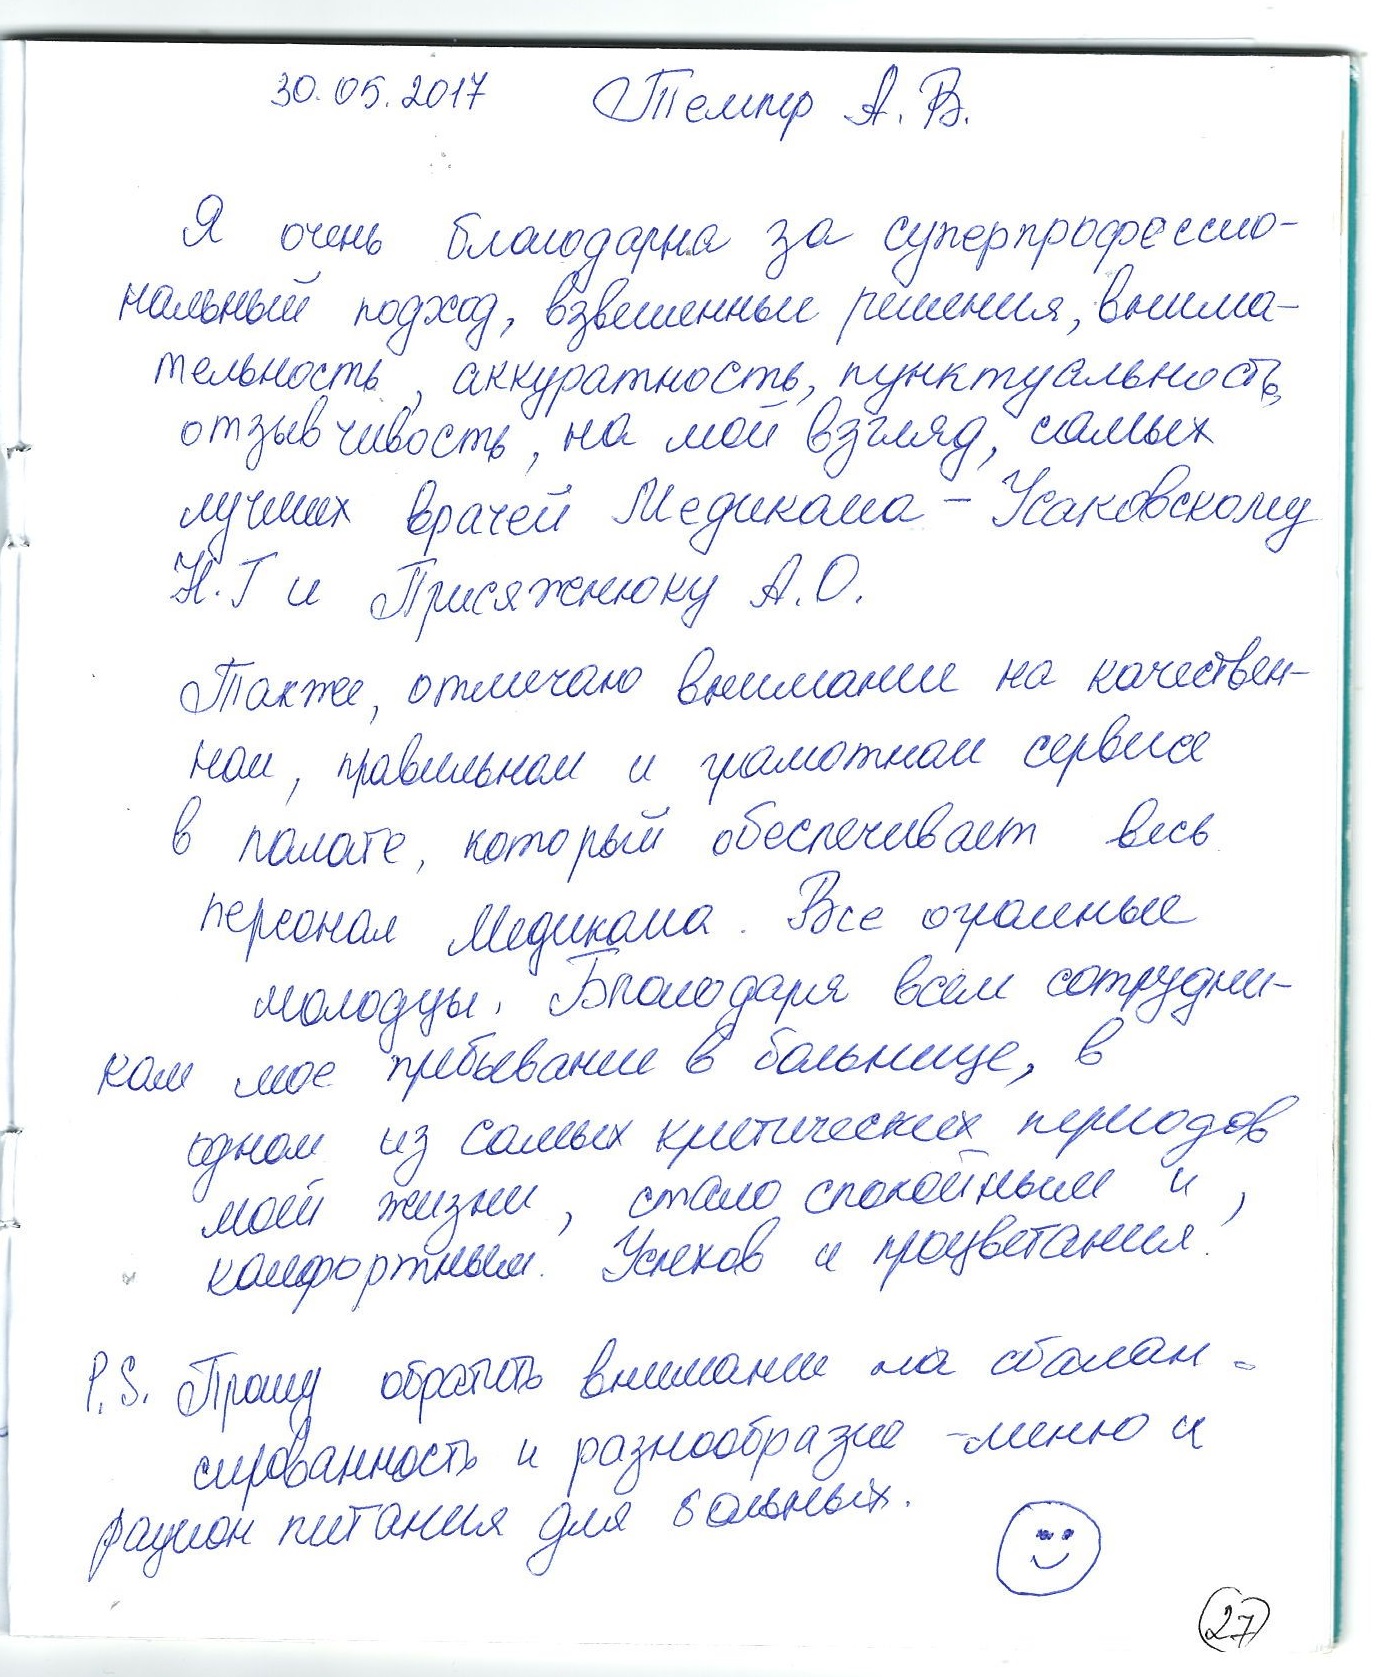 30.05.2017 Темпир А. В.
Я очень благодарна за суперпрофессио-
нальный подход, взвешенные решения, внима-
тельность, аккуратность, пунктуальность,
отзывчивость, на мой взгляд, самых
лучших врачей Медикома - Усаковскому
Н.Г и Присяжнюку А.О.
Также, отмечаю внимание на качествен-
ном, правильном и грамотном сервисе
в палате, который обеспечивает весь
персонал Медикома. Все огромные
молодцы. Благодаря всем сотрудни-
кам мое пребывание в больнице, в
одном из самых критических периодов
моей жизни, стало спокойным и,
комфортным. Успехов и процветания.
P.S. Прошу обратить внимание на сбалан-
сированность и разнообразие -меню и
рацион питания для больных.
27